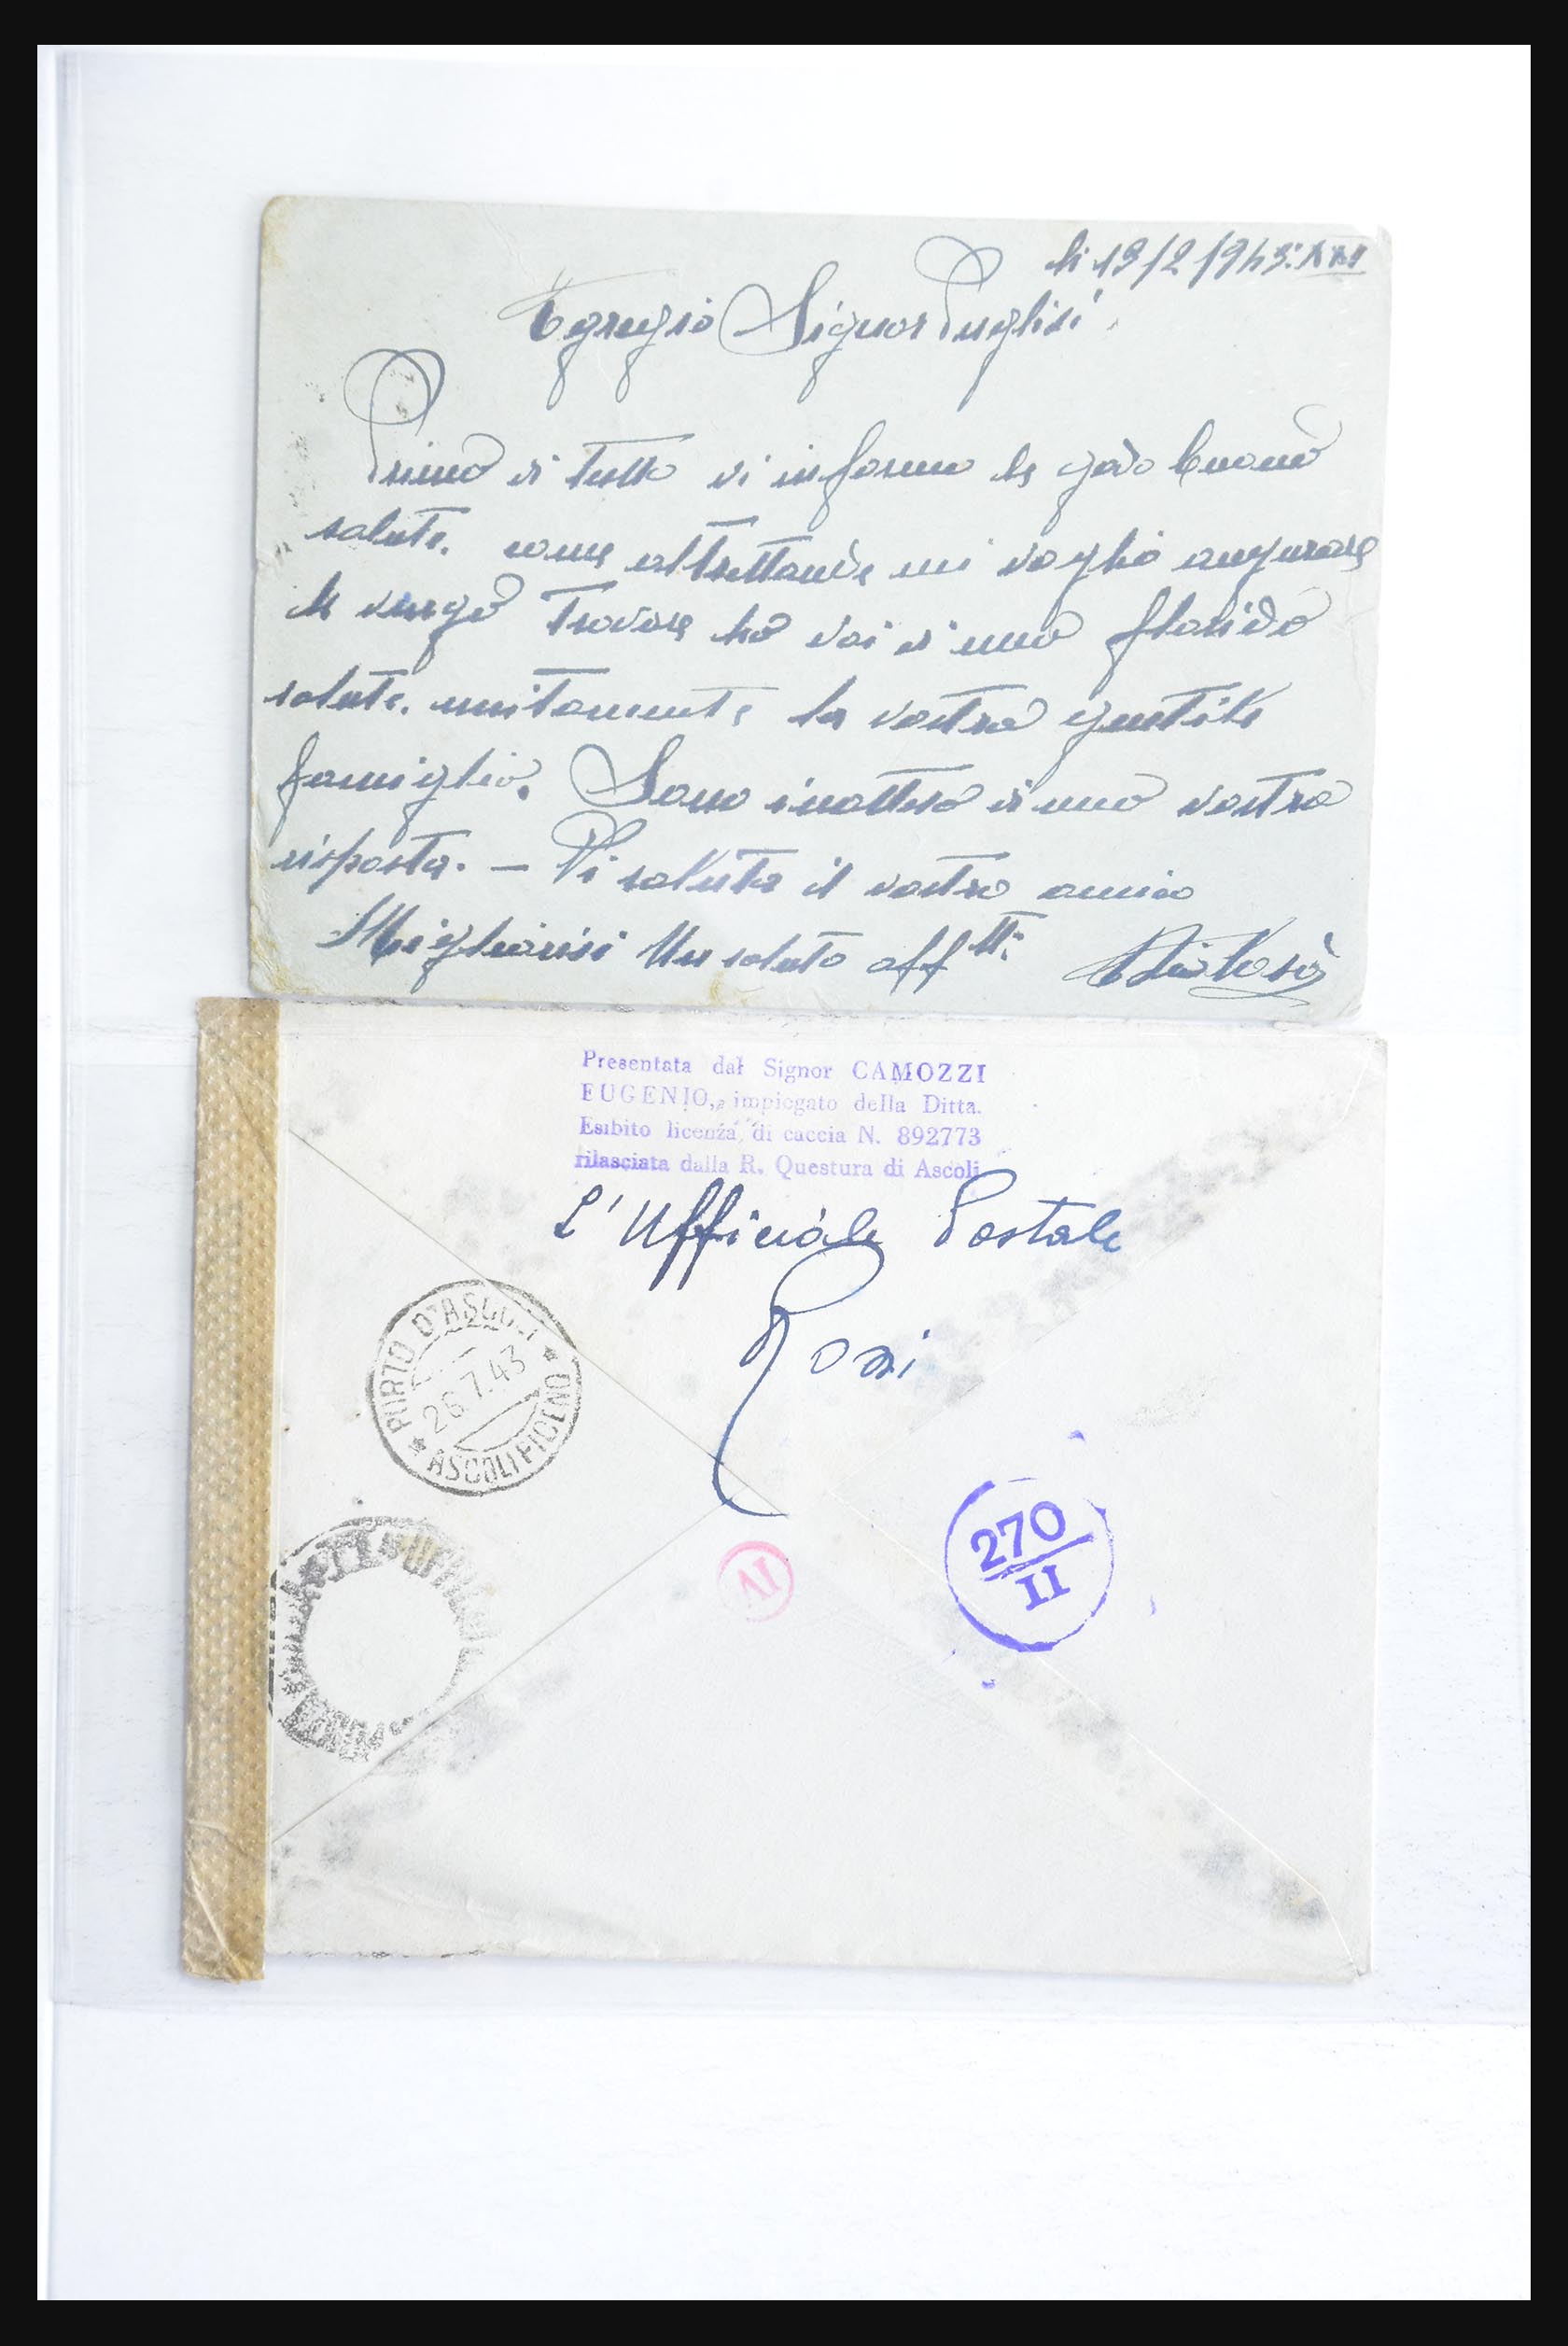 li 19/2/943. XXI
Egregio Signor Puglisi
Prima di tutto vi informo che godo buona
salute. come altrettante mi voglio augurare
che venga trovare ha voi di una florida
salute. unitamente la vostra gentile
famiglia. Sono inattesa di una vostra
risposta. — Vi saluta il vostro amico
Un saluto aff tti:
Presentata dal Signor CAMOZZI
EUGENIO, impiegato della Ditta.
Esibito licenza di caccia N. 892773
rilasciata dalla R. Questura di Ascoli
L'Ufficiale Postale
PORTO D'ASCOLI
26.7.43
* ASCOLI PICENO *
270
II